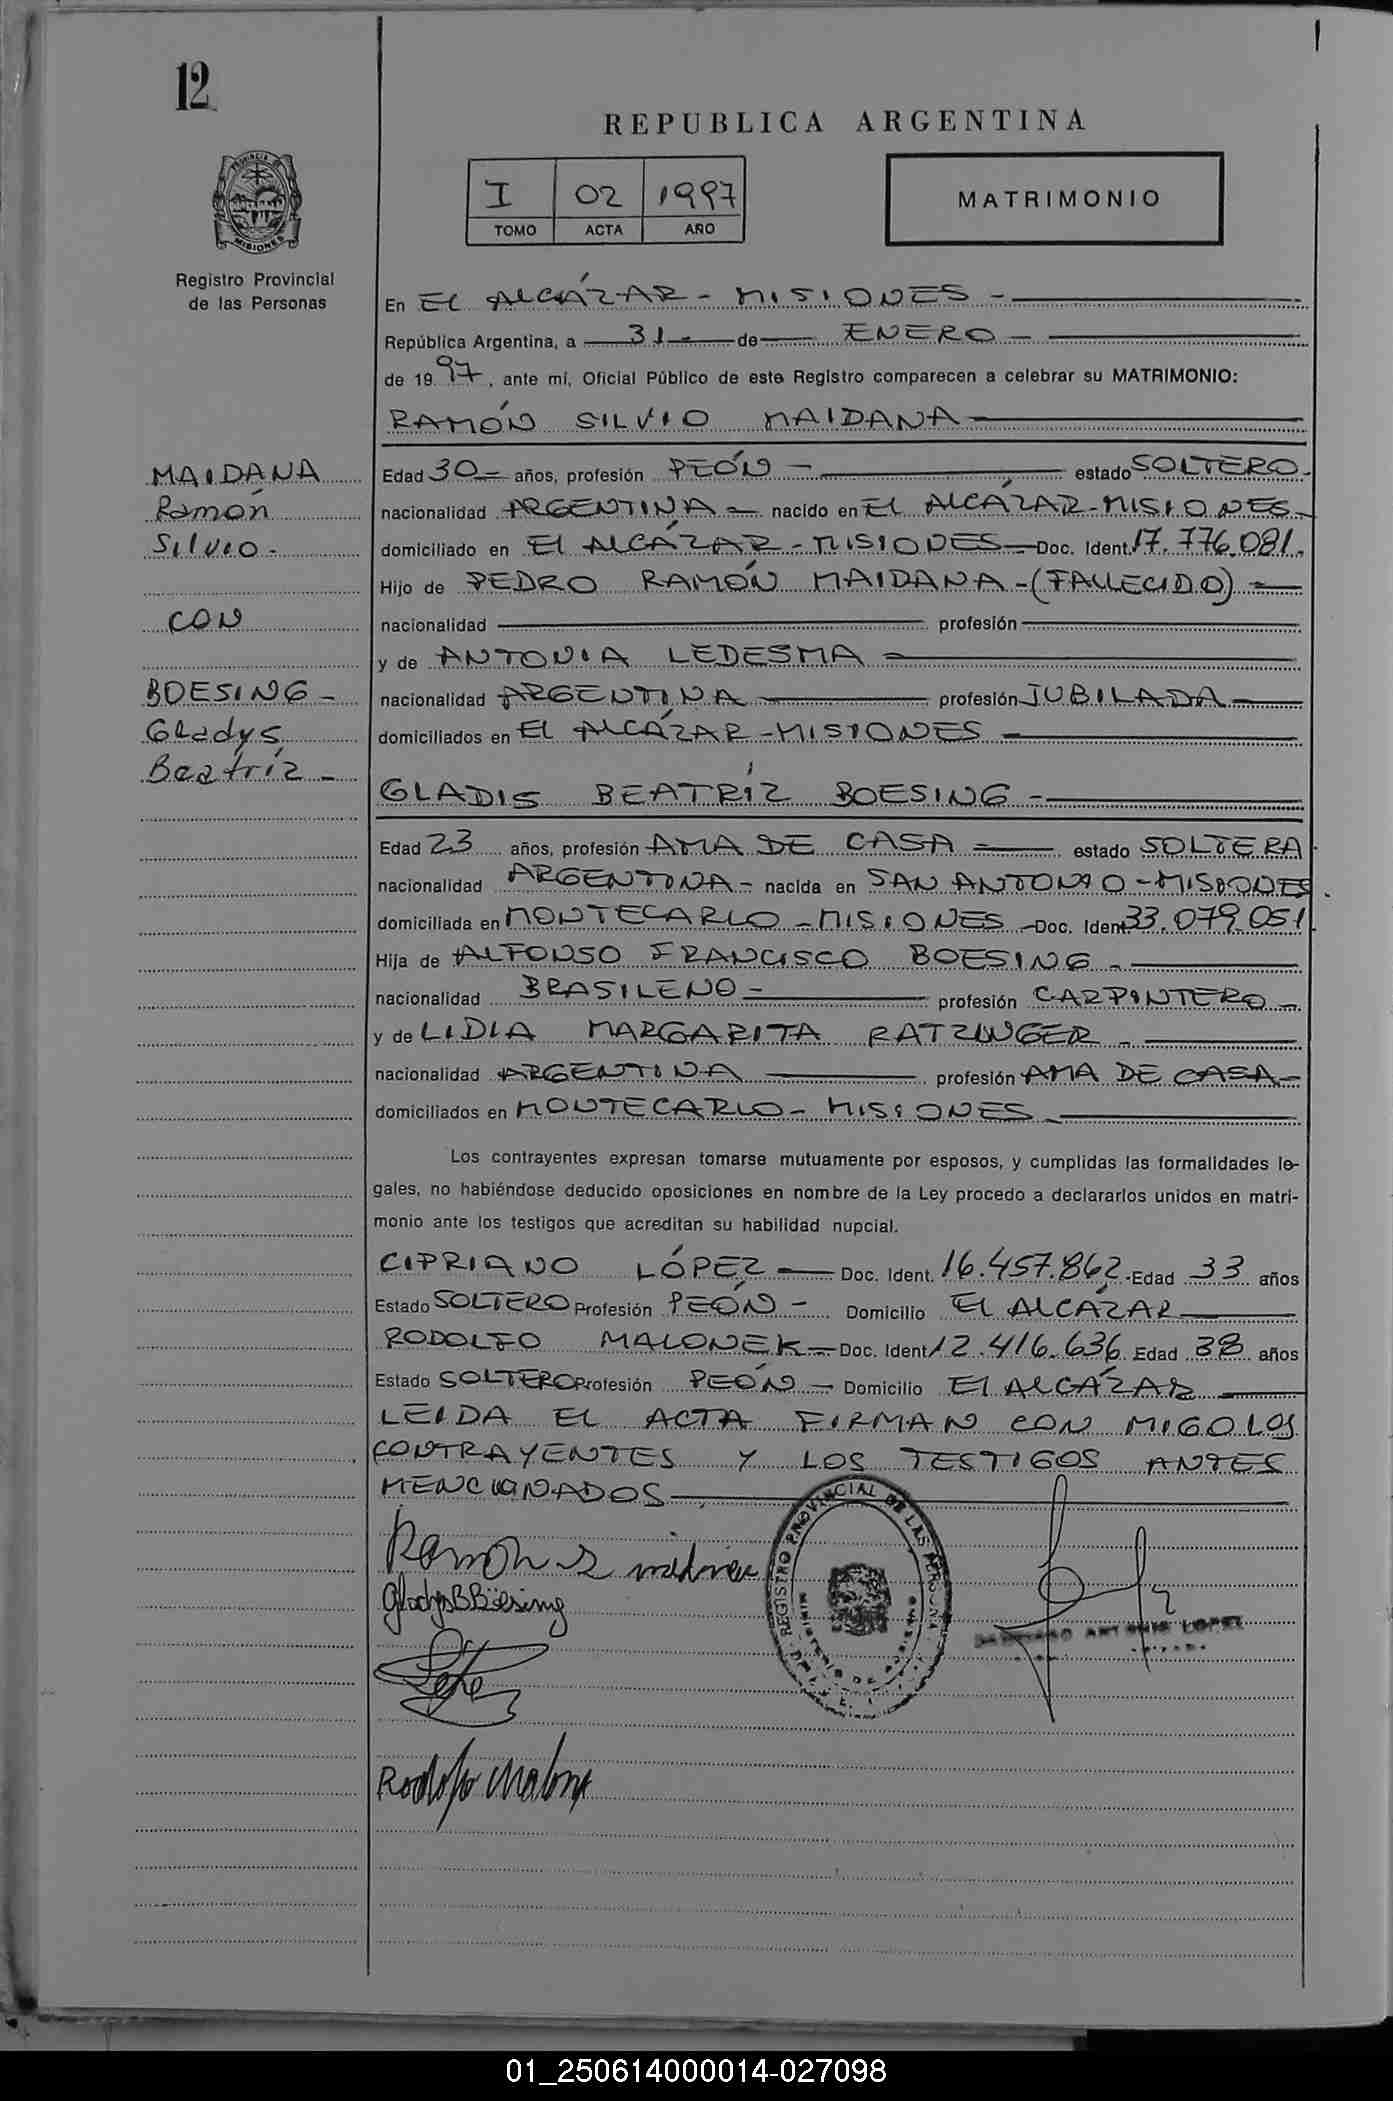 12
REPUBLICA ARGENTINA
I 02 1997
TOMO ACTA AÑO
MATRIMONIO
PROVINCIA DE
MISIONES
Registro Provincial
de las Personas
En El ALCÁZAR - MISIONES -
República Argentina, a 31- de ENERO -
de 1997, ante mí, Oficial Público de este Registro comparecen a celebrar su MATRIMONIO:
RAMÓN SILVIO MAIDANA
MAIDANA
Ramón
Silvio -
CON
BOESING -
Gladys
Beatríz -
Edad 30 años, profesión PEÓN - estado SOLTERO-
nacionalidad ARGENTINA - nacido en El ALCÁZAR-MISIONES-
domiciliado en El ALCÁZAR - MISIONES - Doc. Ident. 17.776.081.
Hijo de PEDRO RAMÓN MAIDANA - (FALLECIDO) -
nacionalidad profesión
y de ANTONIA LEDESMA -
nacionalidad ARGENTINA profesión JUBILADA
domiciliados en El ALCÁZAR - MISIONES -
GLADIS BEATRÍZ BOESING -
Edad 23 años, profesión AMA DE CASA - estado SOLTERA
nacionalidad ARGENTINA - nacida en SAN ANTONIO - MISIONES.
domiciliada en MONTECARLO - MISIONES - Doc. Ident 33.079.051.
Hija de ALFONSO FRANCISCO BOESING -
nacionalidad BRASILENO - profesión CARPINTERO -
y de LIDIA MARGARITA RATZINGER -
nacionalidad ARGENTINA profesión AMA DE CASA -
domiciliados en MONTECARLO - MISIONES -
Los contrayentes expresan tomarse mutuamente por esposos, y cumplidas las formalidades le-
gales, no habiéndose deducido oposiciones en nombre de la Ley procedo a declararlos unidos en matri-
monio ante los testigos que acreditan su habilidad nupcial.
CIPRIANO LÓPEZ - Doc. Ident. 16.457.862 - Edad 33 años
Estado SOLTERO Profesión PEÓN - Domicilio El ALCÁZAR
RODOLFO MALONEK - Doc. Ident 12.416.636 Edad 38 años
Estado SOLTERO Profesión PEÓN - Domicilio El ALCÁZAR
LEIDA El ACTA FIRMAN CON MIGO LOS
CONTRAYENTES Y LOS TESTIGOS ANTES
MENCIONADOS
Ramon S
GladysBBoesing
REGISTRO PROVINCIAL DE LAS PERSONAS
ANTONIO LOPEZ
Rodolfo
01_250614000014-027098